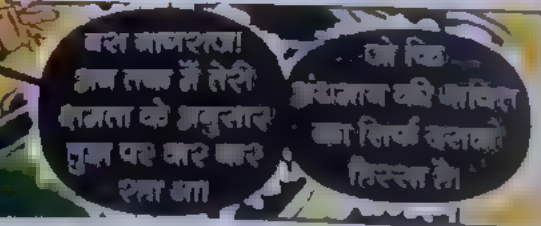 बस नागराज!
अब तक मैं तेरी
क्षमता के अनुसार
तुझ पर वार कर
रहा था।
जो कि
की शक्ति
का सिर्फ दसवां
हिस्सा है।